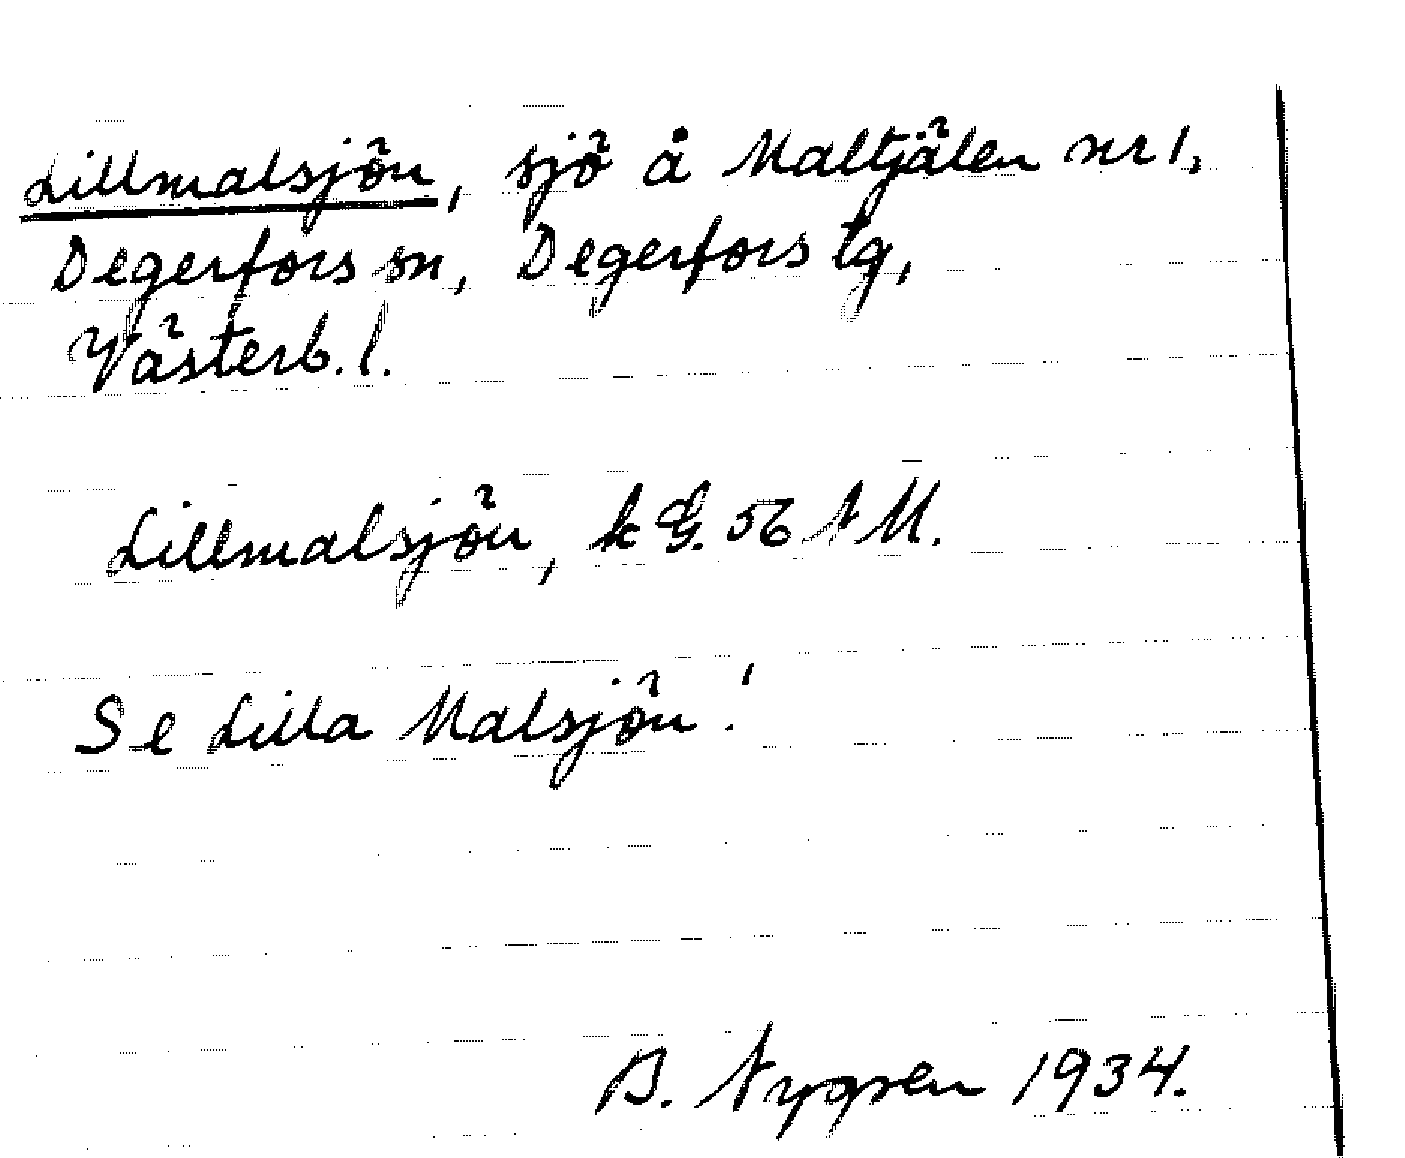 Lillmalsjön, sjö å Maltjälen nr 1,
Degerfors sn, Degerfors tg,
Västerb. l.
Lillmalsjön, k G. 56 N M.
Se Lilla Malsjön!
B. Nygren 1934.